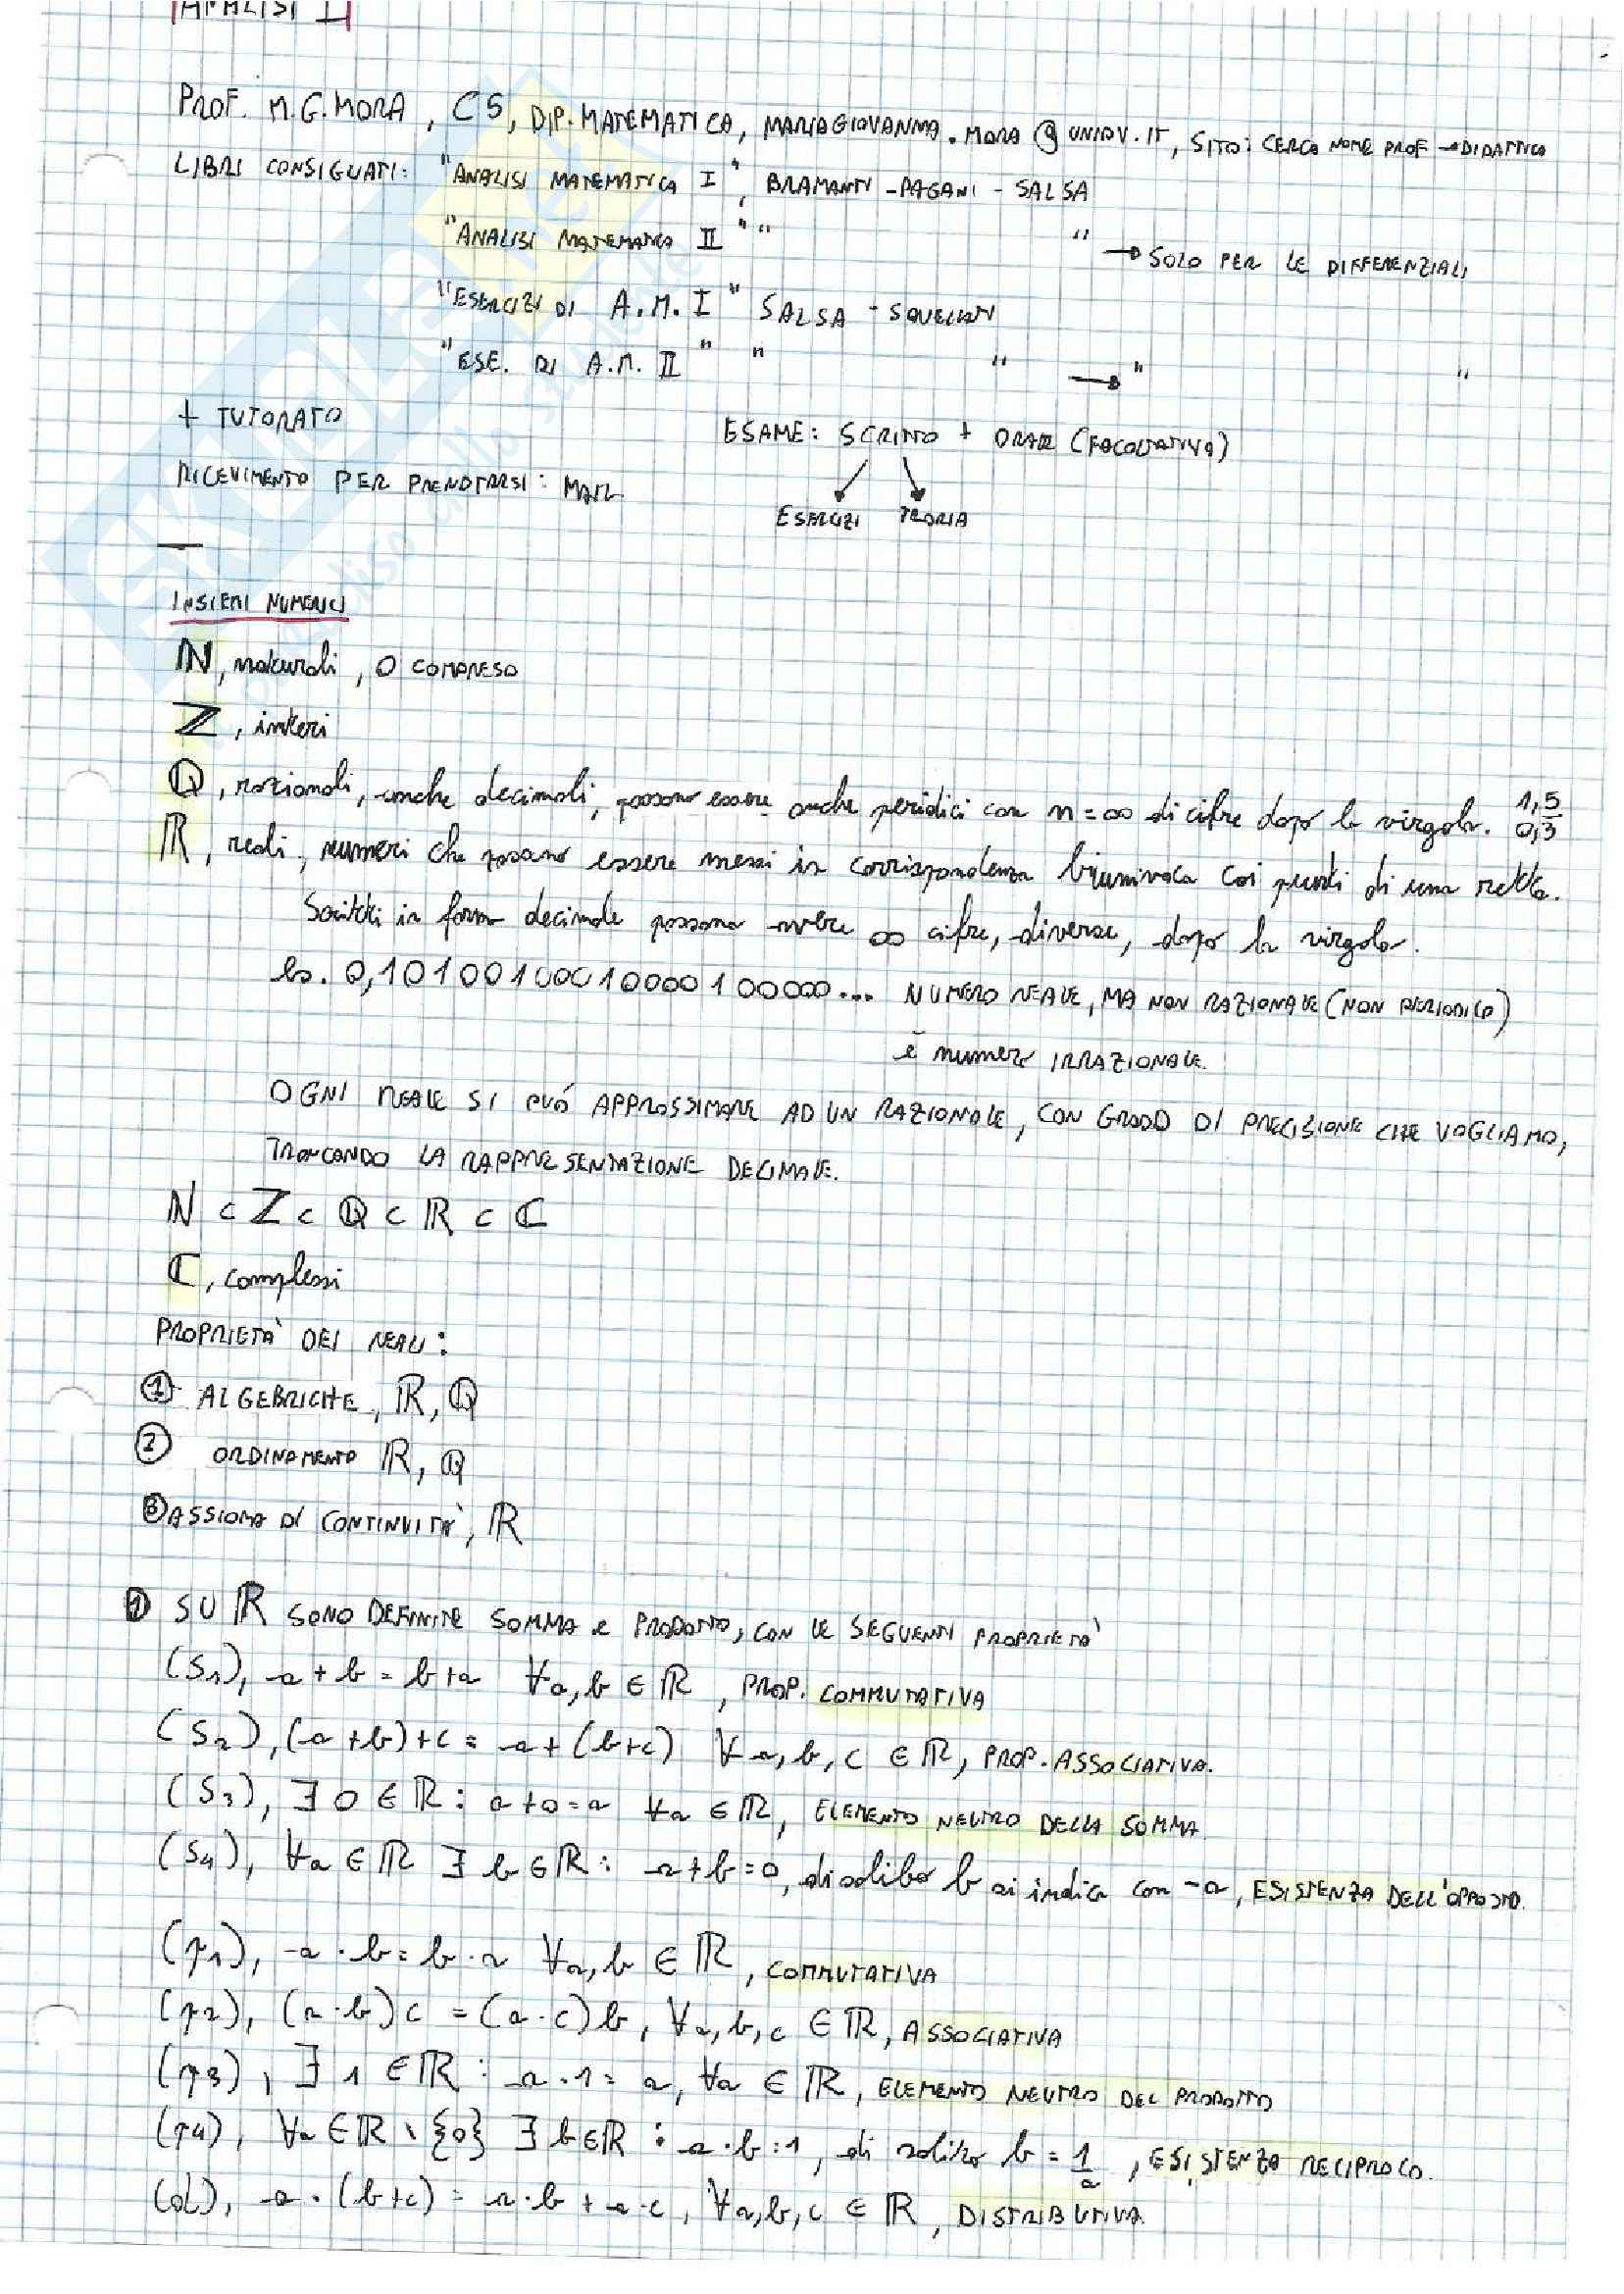 ANALISI I
PROF. M.G. MORA, CS, DIP. MATEMATICA, MARIAGIOVANNA.MORA @ UNIPV.IT, SITO: CERCA NOME PROF → DIDATTICA
LIBRI CONSIGLIATI: "ANALISI MATEMATICA I", BRAMANTI - PAGANI - SALSA
"ANALISI MATEMATICA II" " " → SOLO PER LE DIFFERENZIALI
"ESERCIZI DI A.M. I" SALSA - SQUELLATI
"ESE. DI A.M. II" " " → " "
+ TUTORATO
ESAME: SCRITTO + ORALE (FACOLTATIVO)
RICEVIMENTO PER PRENOTARSI: MAIL
ESERCIZI TEORIA
INSIEMI NUMERICI
ℕ, naturali, 0 COMPRESO
ℤ, interi
ℚ, razionali, anche decimali, possono essere anche periodici con n = ∞ di cifre dopo la virgola. 1,5 0,3̅
ℝ, reali, numeri che possono essere messi in corrispondenza biunivoca coi punti di una retta.
Scritti in forma decimale possono avere ∞ cifre, diverse, dopo la virgola.
Es. 0,10100100010000100000... NUMERO REALE, MA NON RAZIONALE (NON PERIODICO)
è numero IRRAZIONALE.
OGNI REALE SI PUÓ APPROSSIMARE AD UN RAZIONALE, CON GRADO DI PRECISIONE CHE VOGLIAMO,
TRONCANDO LA RAPPRESENTAZIONE DECIMALE.
ℕ ⊂ ℤ ⊂ ℚ ⊂ ℝ ⊂ ℂ
ℂ, complessi
PROPRIETÀ DEI REALI:
① ALGEBRICHE, ℝ, ℚ
② ORDINAMENTO ℝ, ℚ
③ ASSIOMA DI CONTINUITÀ, ℝ
① SU ℝ SONO DEFINITE SOMMA e PRODOTTO, CON LE SEGUENTI PROPRIETÀ
(S₁), a + b = b + a ∀a, b ∈ ℝ, PROP. COMMUTATIVA
(S₂), (a + b) + c = a + (b + c) ∀a, b, c ∈ ℝ, PROP. ASSOCIATIVA.
(S₃), ∃ 0 ∈ ℝ : a + 0 = a ∀a ∈ ℝ, ELEMENTO NEUTRO DELLA SOMMA
(S₄), ∀a ∈ ℝ ∃ b ∈ ℝ : a + b = 0, di solito b si indica con -a, ESISTENZA DELL'OPPOSTO.
(p₁), a · b = b · a ∀a, b ∈ ℝ, COMMUTATIVA
(p₂), (a · b) c = (a · c) b, ∀a, b, c ∈ ℝ, ASSOCIATIVA
(p₃), ∃ 1 ∈ ℝ : a · 1 = a, ∀a ∈ ℝ, ELEMENTO NEUTRO DEL PRODOTTO
(p₄), ∀a ∈ ℝ \ {0} ∃ b ∈ ℝ : a · b = 1, di solito b = 1/a, ESISTENZA RECIPROCO.
(d), a · (b + c) = a · b + a · c, ∀a, b, c ∈ ℝ, DISTRIBUTIVA